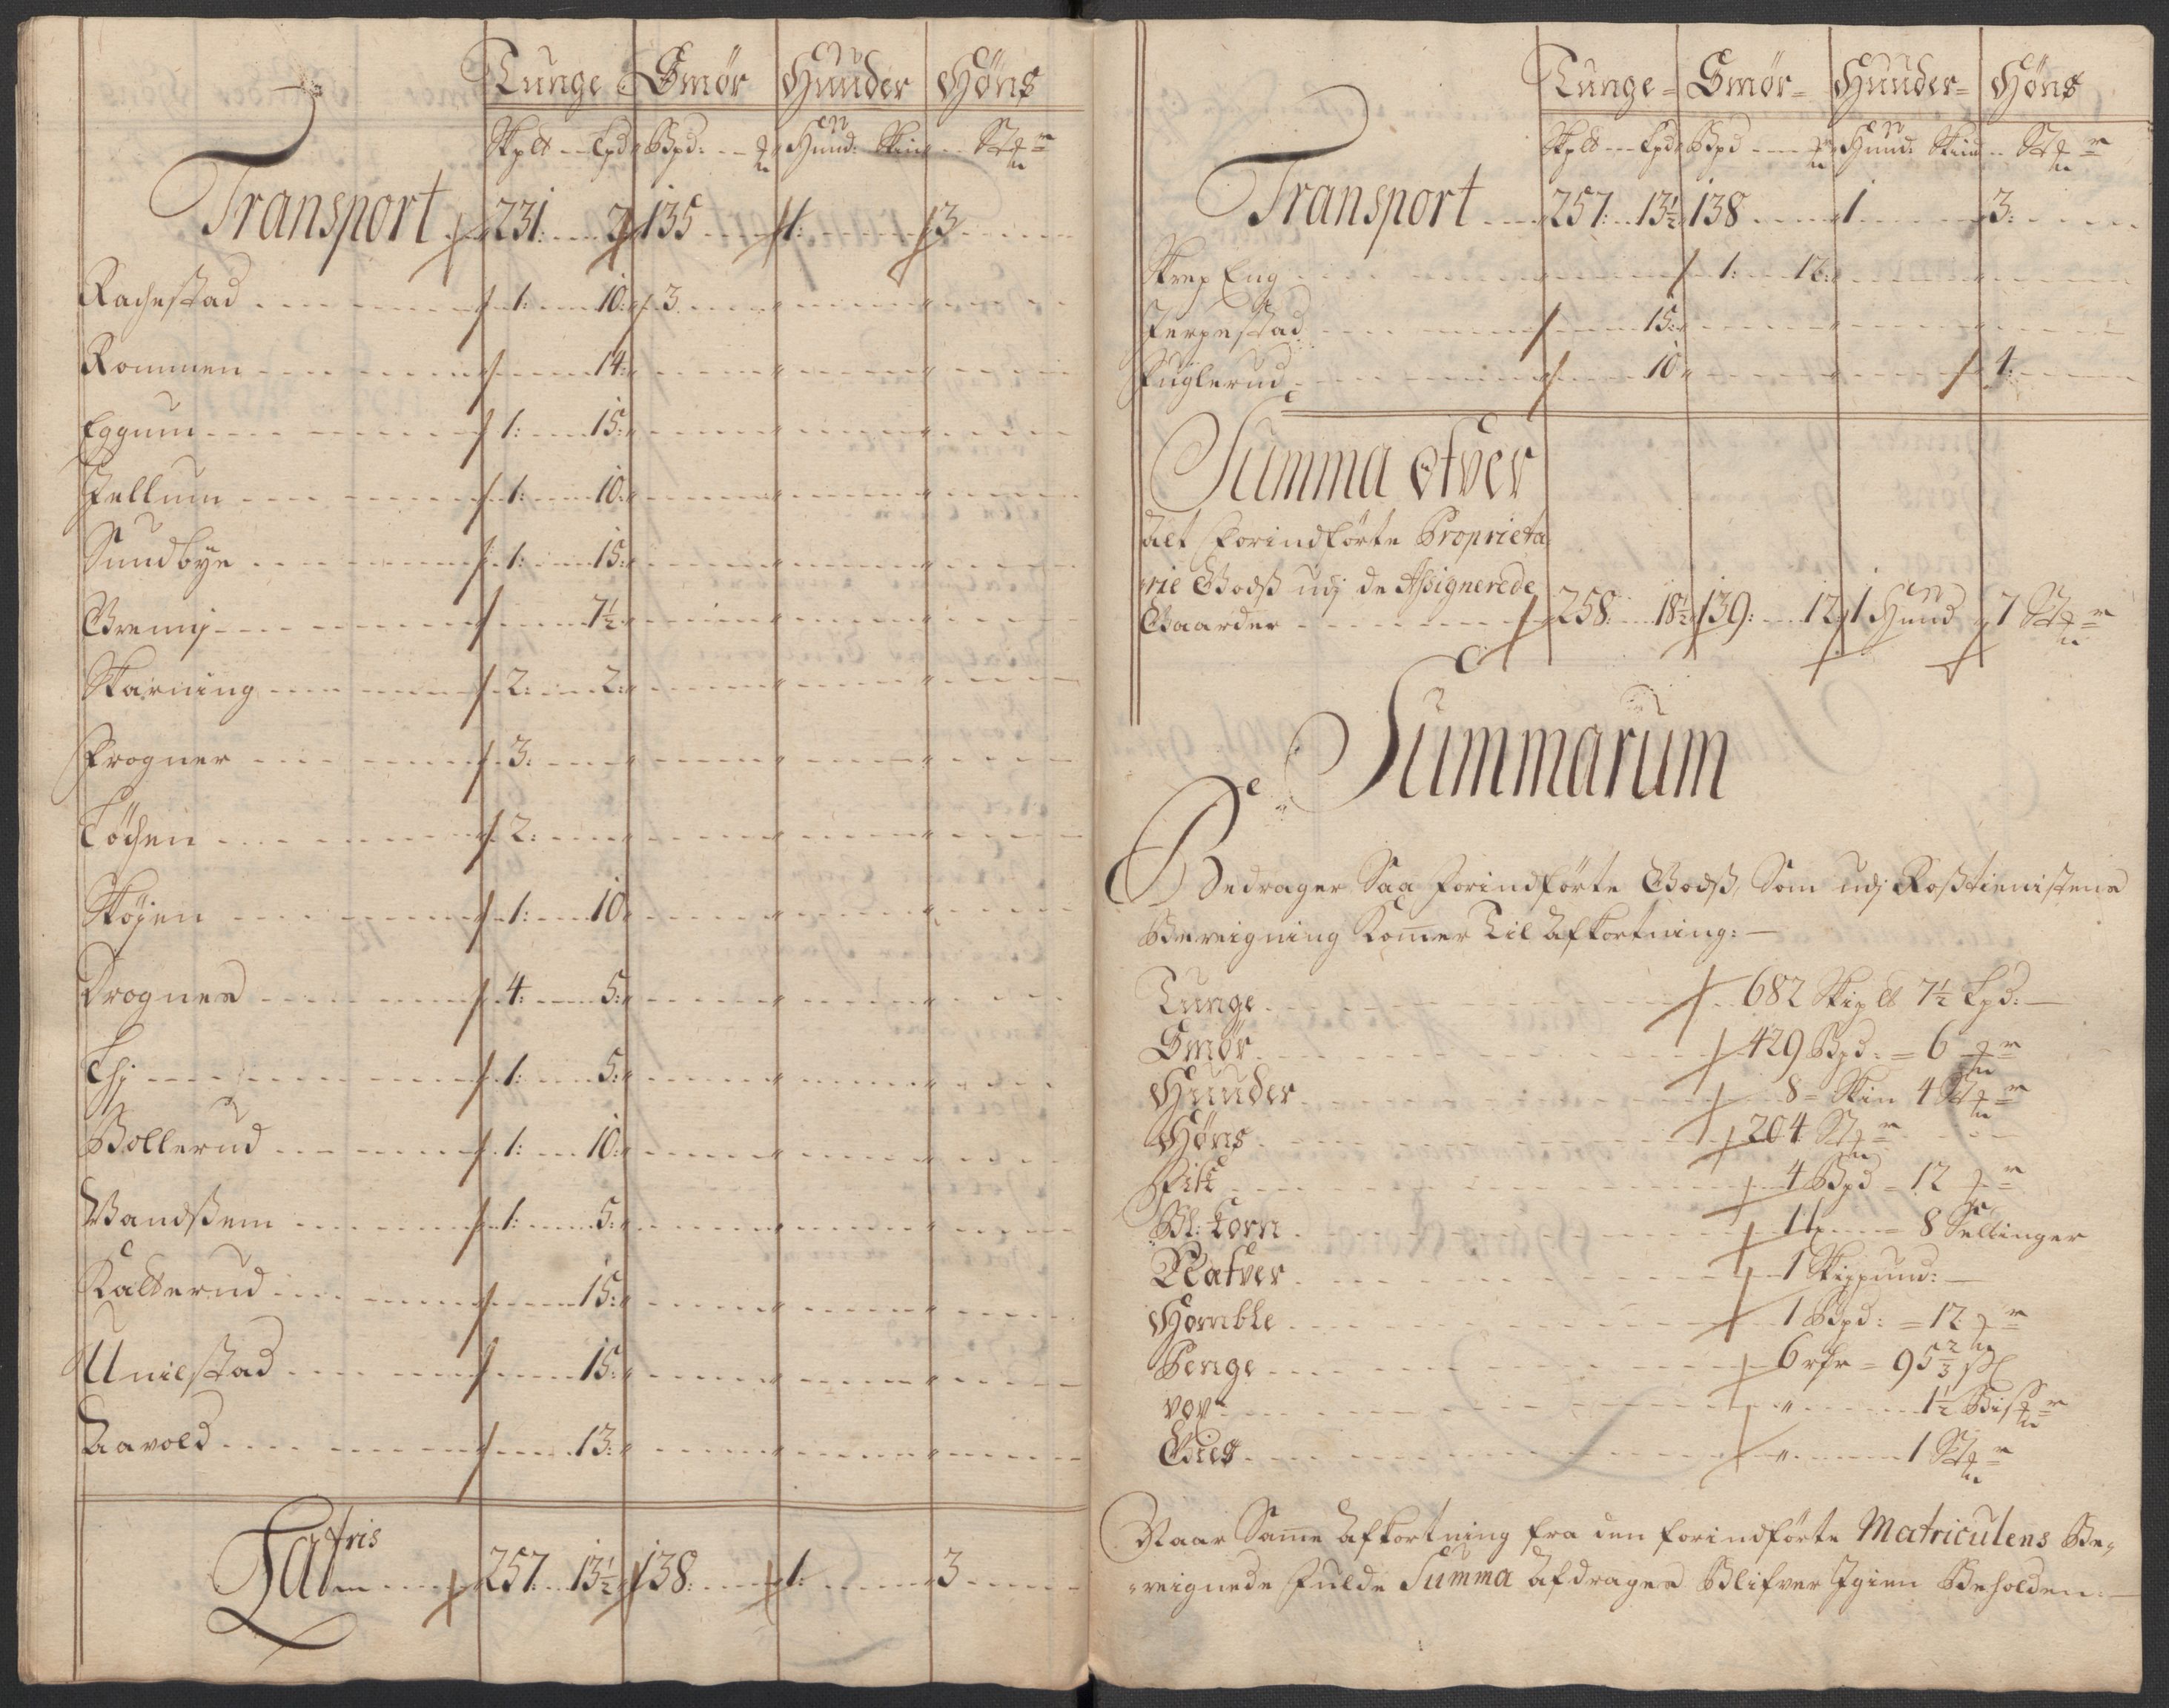 Tunge Smør Huuder Høns
Skp℔ Lpd Bpd: Hund: Skin St
Transport 231: 2 135 1: 3
Rachestad 1: 10: 3
Rommen 14:
Eggum 1: 15:
Fellum 1: 10:
Sundbye 1: 15:
Gremj 7½
Skarning 2: 2:
Frogner 3:
Løchen 2:
Skøyen 1: 10
Drognes 4: 5:
Lhj 1: 5:
Bollerud 1: 10:
Wandssem 1: 5:
Kalterud 15:
Unilstad 15:
Aavold 13:
Latris 257 13½ 138: 1: 3
Tunge Smør Huuder Høns
Skp℔ Lpd Bpd Hund: Skind St
Transport 257: 13½ 138 1 3:
Krep Eng 1: 16:
Ferpestad 15:
Fuglerud 10 4:
Summa ofver
Alt forindførte Proprieta
rie Godss udj de Assignerede
Gaarder 258: 18½ 139: 12 1 Hund 7 St
Summarum
Bedrager Saa forindførte Godss, Som udj Rosstienistens
Bereigning Komer Til Afkortning:
Tunge 682 Skip℔ 7½ Lpd:
Smør 429 Bpd: = 6
Huuder 8 = Skin 4 St
Høns 204 St
Fisk 4 Bpd = 12
Bl: Korn 11 = 8 Settinger
Hafver 1 Skippund:
Homble 1 Bpd: = 12
Penge 6 rdr = 95⅔ s
vov 1½ Bis
Gies 1 St
Naar Same Afkortning fra den forindførte Matriculens Be,
reignede fulde Summa Afdrages Blifver Igien Beholden: